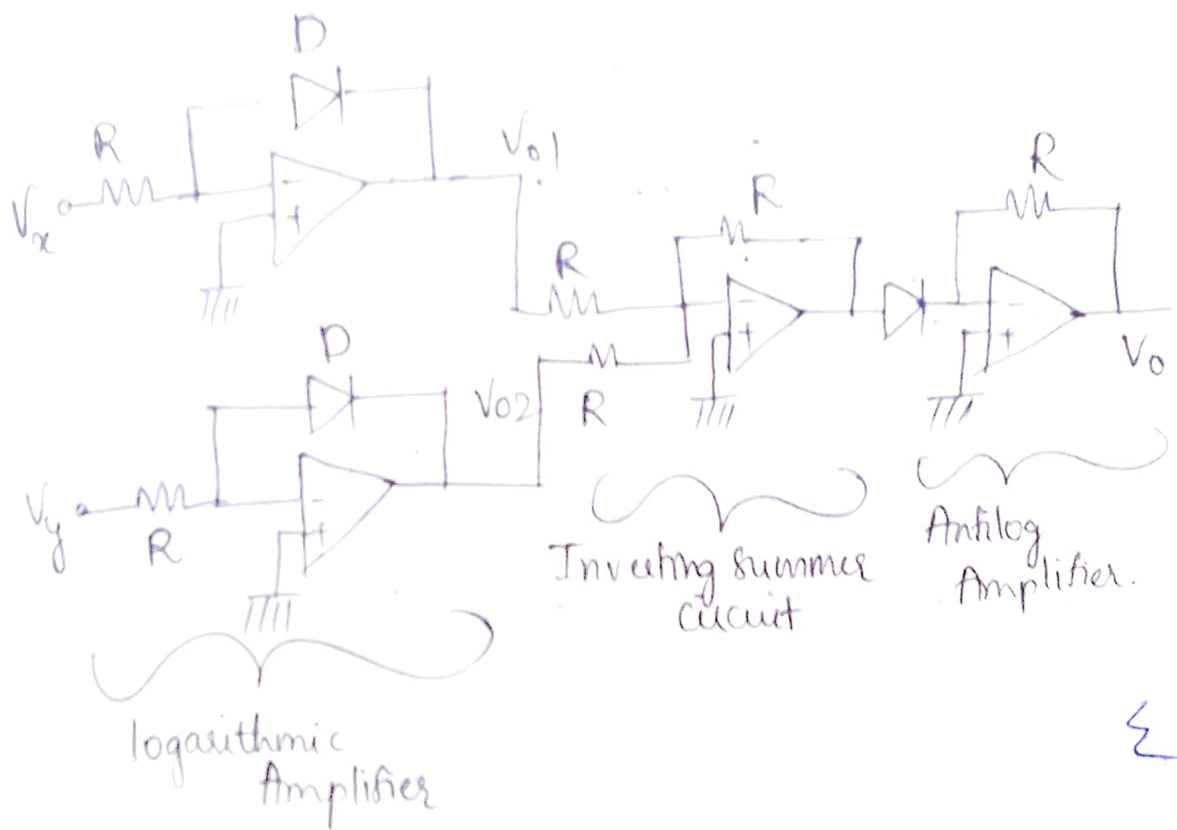 D
R
V₀1
Vₓ
-
+
R
R
R
-
+
-
+
V₀
D
V₀2
R
V_y
R
-
+
Inverting summer
circuit
Antilog
Amplifier.
logarithmic
Amplifier
Σ